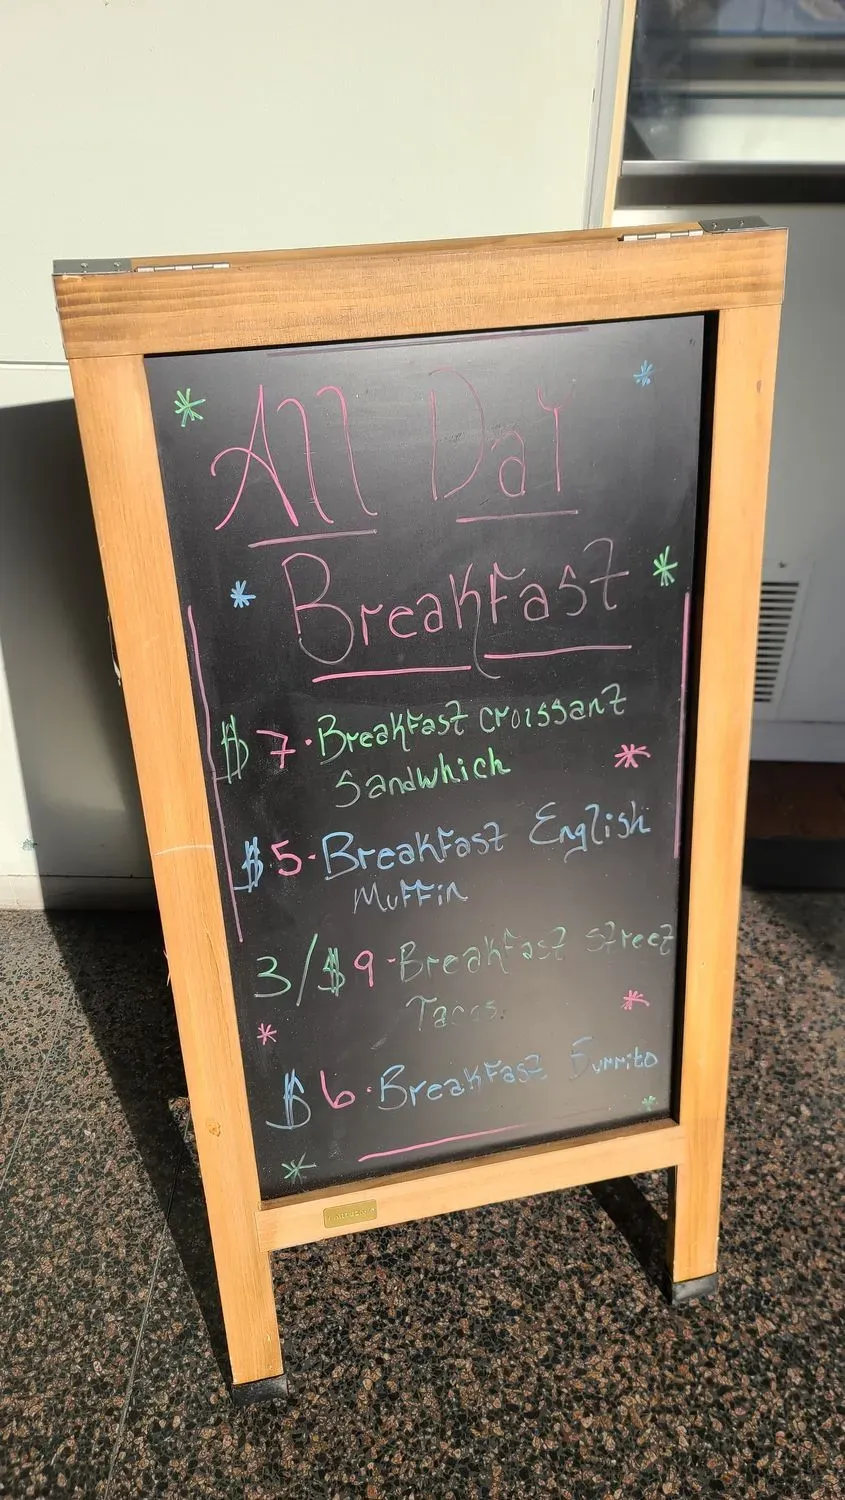 All Day
Breakfast
$7·Breakfast croissant
Sandwhich
$5-Breakfast English
Muffin
3/$9-Breakfast street
Tacos.
$6·Breakfast Burrito